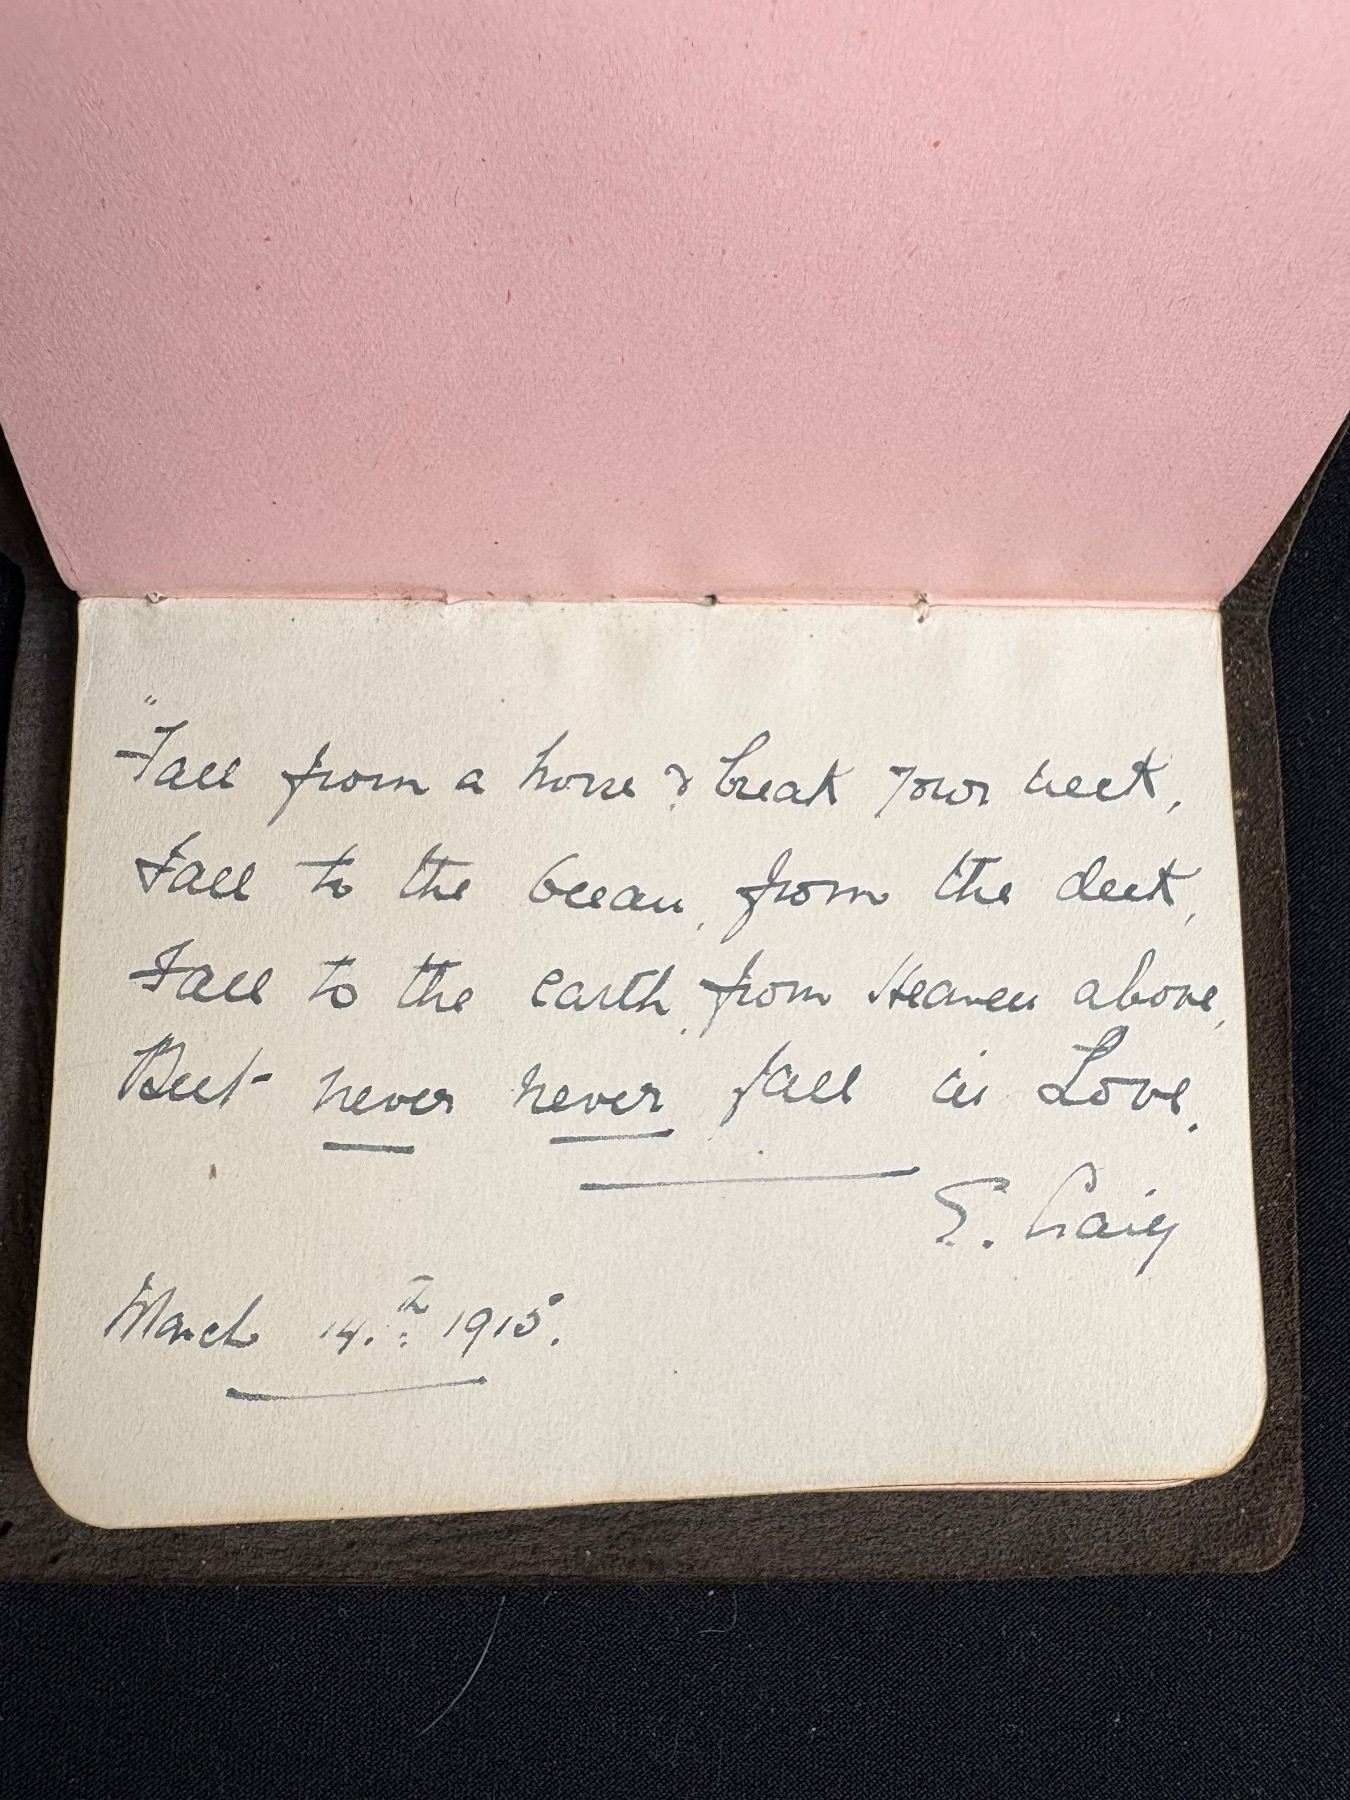 "Fall from a horse & break your neck,
Fall to the Ocean, from the deck,
Fall to the earth, from Heaven above,
But never never fall in Love.
E. Craig
March 14.th 1915.